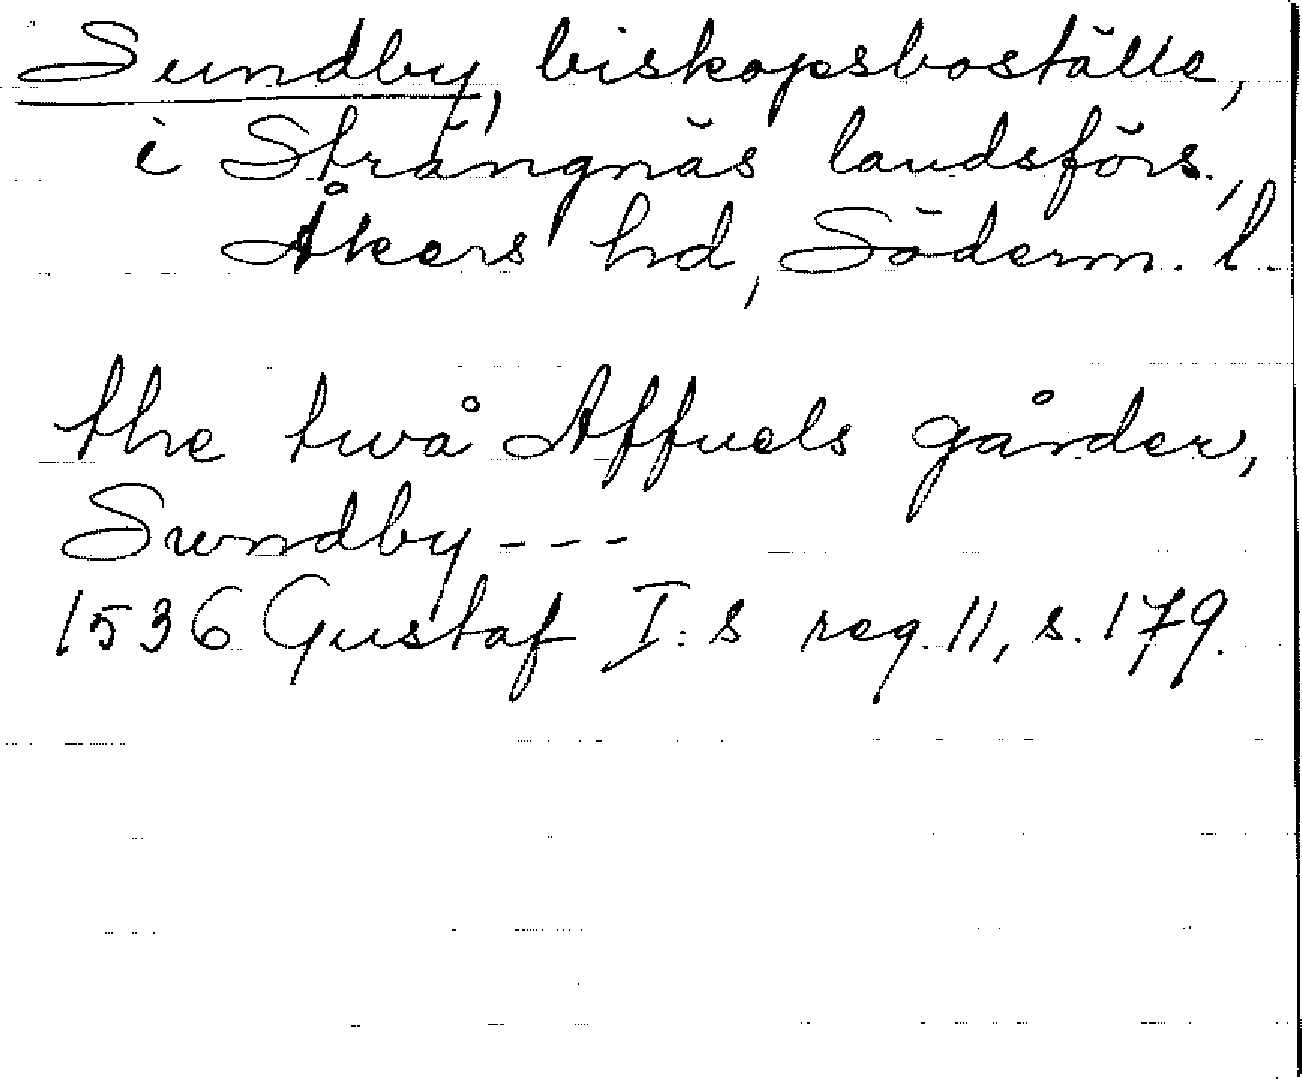 Sundby, biskopsboställe,
i Strängnäs landsförs.,
Åkers hd, Söderm. l.
the twå Affuels gårder,
Sundby - - -
1536 Gustaf I:s reg. 11, s. 179.